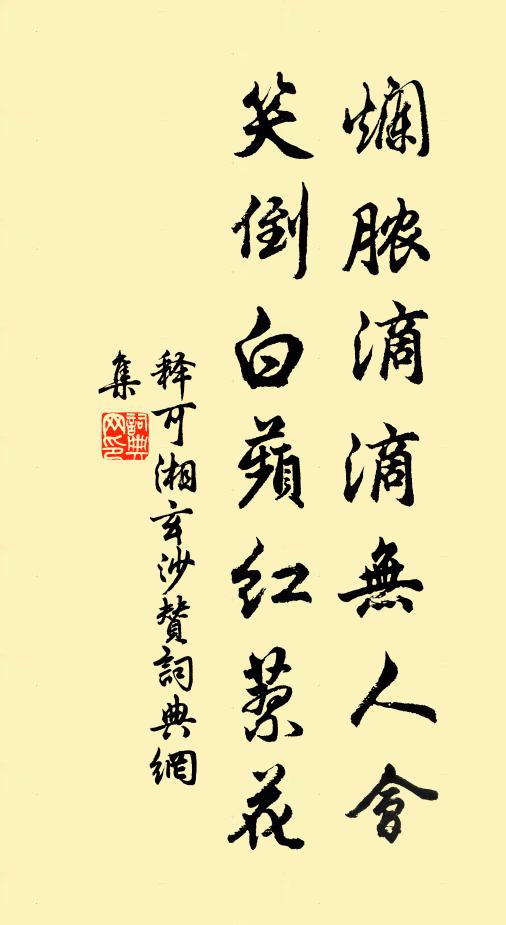 爛脓滴滴無人會
笑倒白蘋紅蓼花
释可湘玄沙賛詞典網
集
詞典網印